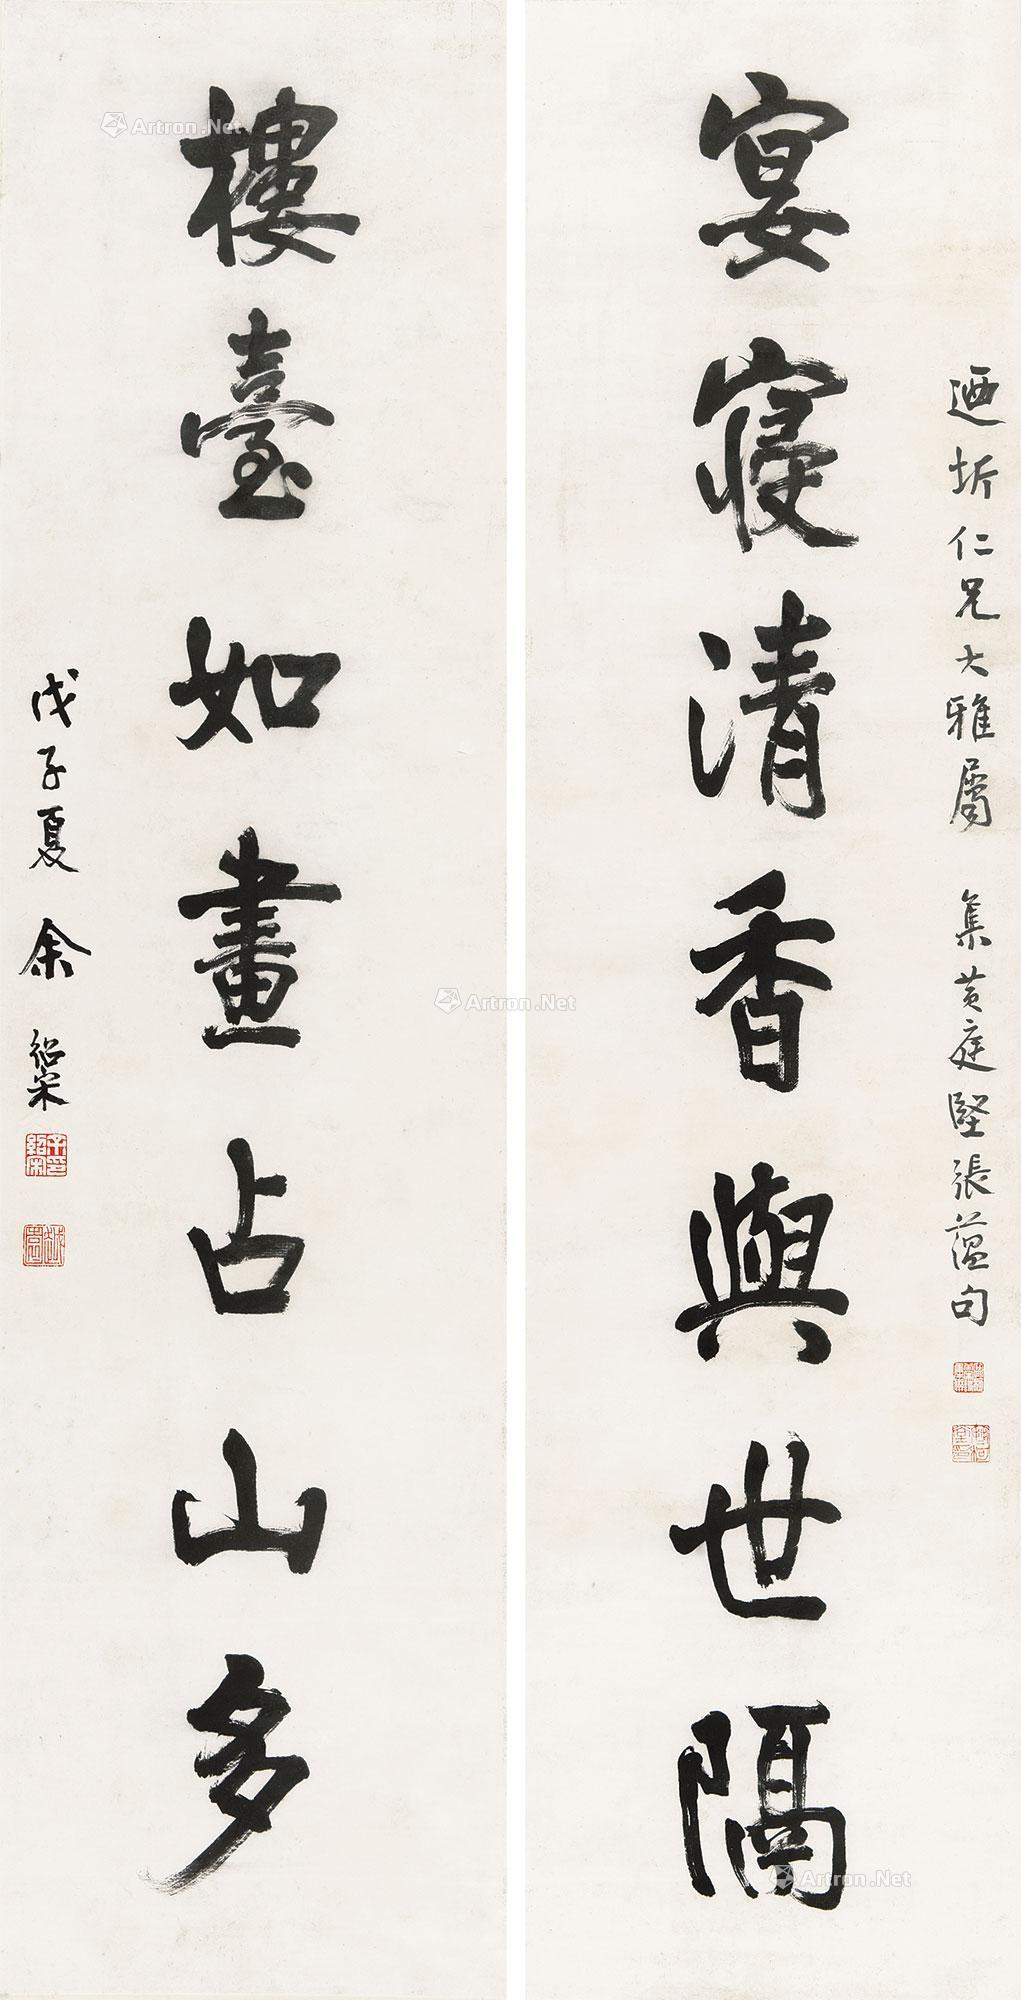 迺圻仁兄大雅屬 集黃庭堅張蘊句
宴寢清香與世隔
樓臺如畫占山多
戊子夏 余紹宋
Artron.Net
Artron.Net
Artron.Net